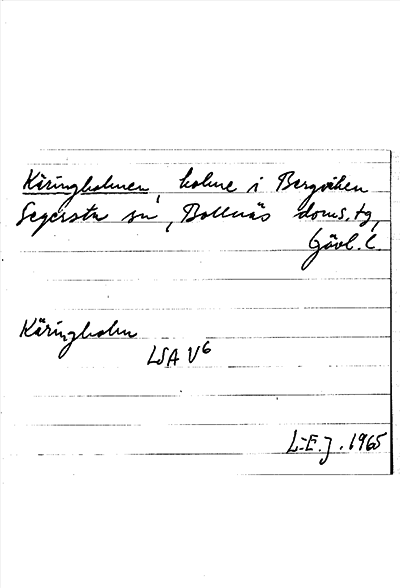 Käringholmen, holme i Bergviken
Segersta sn, Bollnäs doms. tg,
Gävl. l.
Käringholm
LSA V6
L-E. J. 1965